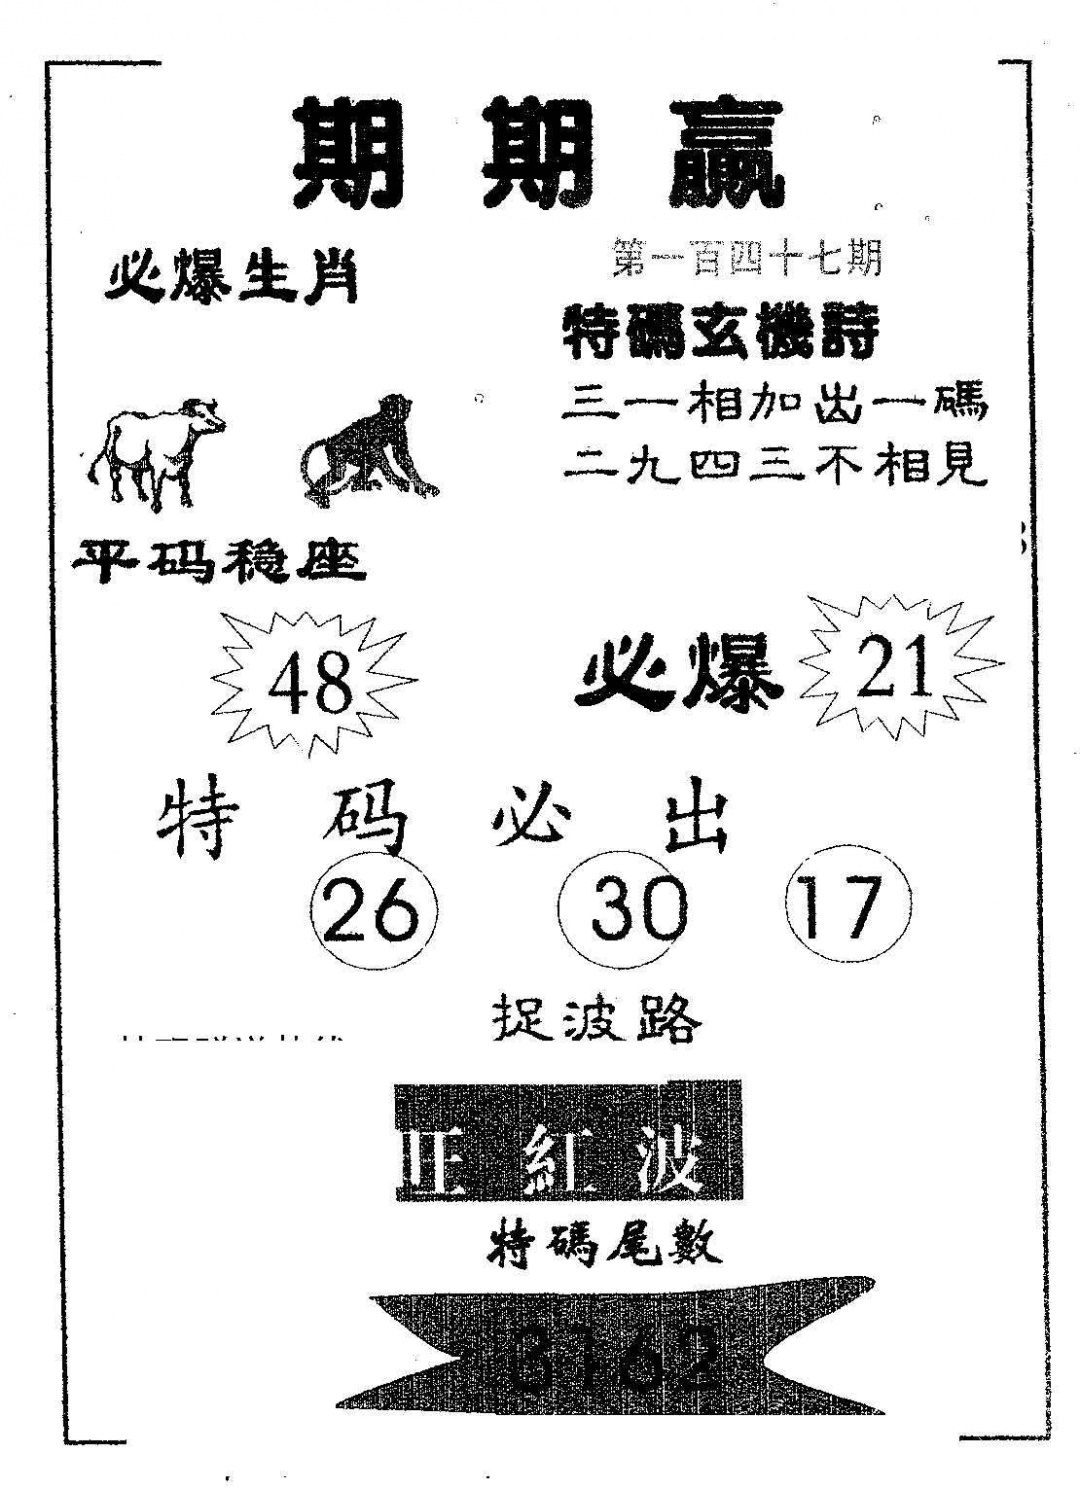 期期贏
第一百四十七期
必爆生肖
特碼玄機詩
三一相加出一碼
二九四三不相見
平码稳座
48
必爆 21
特码必出
26 30 17
捉波路
旺紅波
特碼尾數
3162